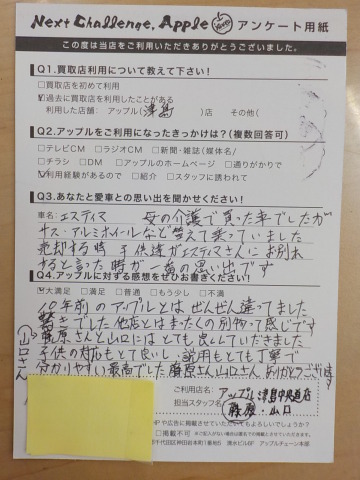 Next Challenge. Apple アンケート用紙
この度は当店をご利用いただきありがとうございました。
Q1.買取店利用について教えて下さい!
□買取店を初めて利用
☑過去に買取店を利用したことがある
利用した店舗: アップル(津島)店 その他(
Q2.アップルをご利用になったきっかけは?(複数回答可)
□テレビCM □ラジオCM □新聞・雑誌(媒体名/
□チラシ □DM □アップルのホームページ □通りがかりで
☑利用経験があるので □紹介 □スタッフに誘われて
Q3.あなたと愛車との思い出を聞かせください!
車名:エスティマ 母の介護で買った車でしたが
サス・アルミホイールなど替えて乗っていました
売却する時 子供達がエスティマさんにお別れ
すると言った時が一番の思い出です
Q4.アップルに対する感想をぜひお書きください!
☑大満足 □満足 □普通 □もう少し □不満
10年前のアップルとはぜんぜん違ってました
驚きでした 他店とはまったくの別物って感じです
藤原さんと山口にはとても良くしていただきました
山口さん
子供の対応もとて良いし 説明もとても丁寧で
分かりやすい最高でした 藤原さん山口さん ありがとうございます
ご利用店名: アップル津島中央道店
担当スタッフ名: 藤原・山口
HPや広告に掲載させていただいてもよろしいでしょうか?
□掲載不可
千代田区神田岩本町1番地5 清水ビル8F アップルチェーン本部